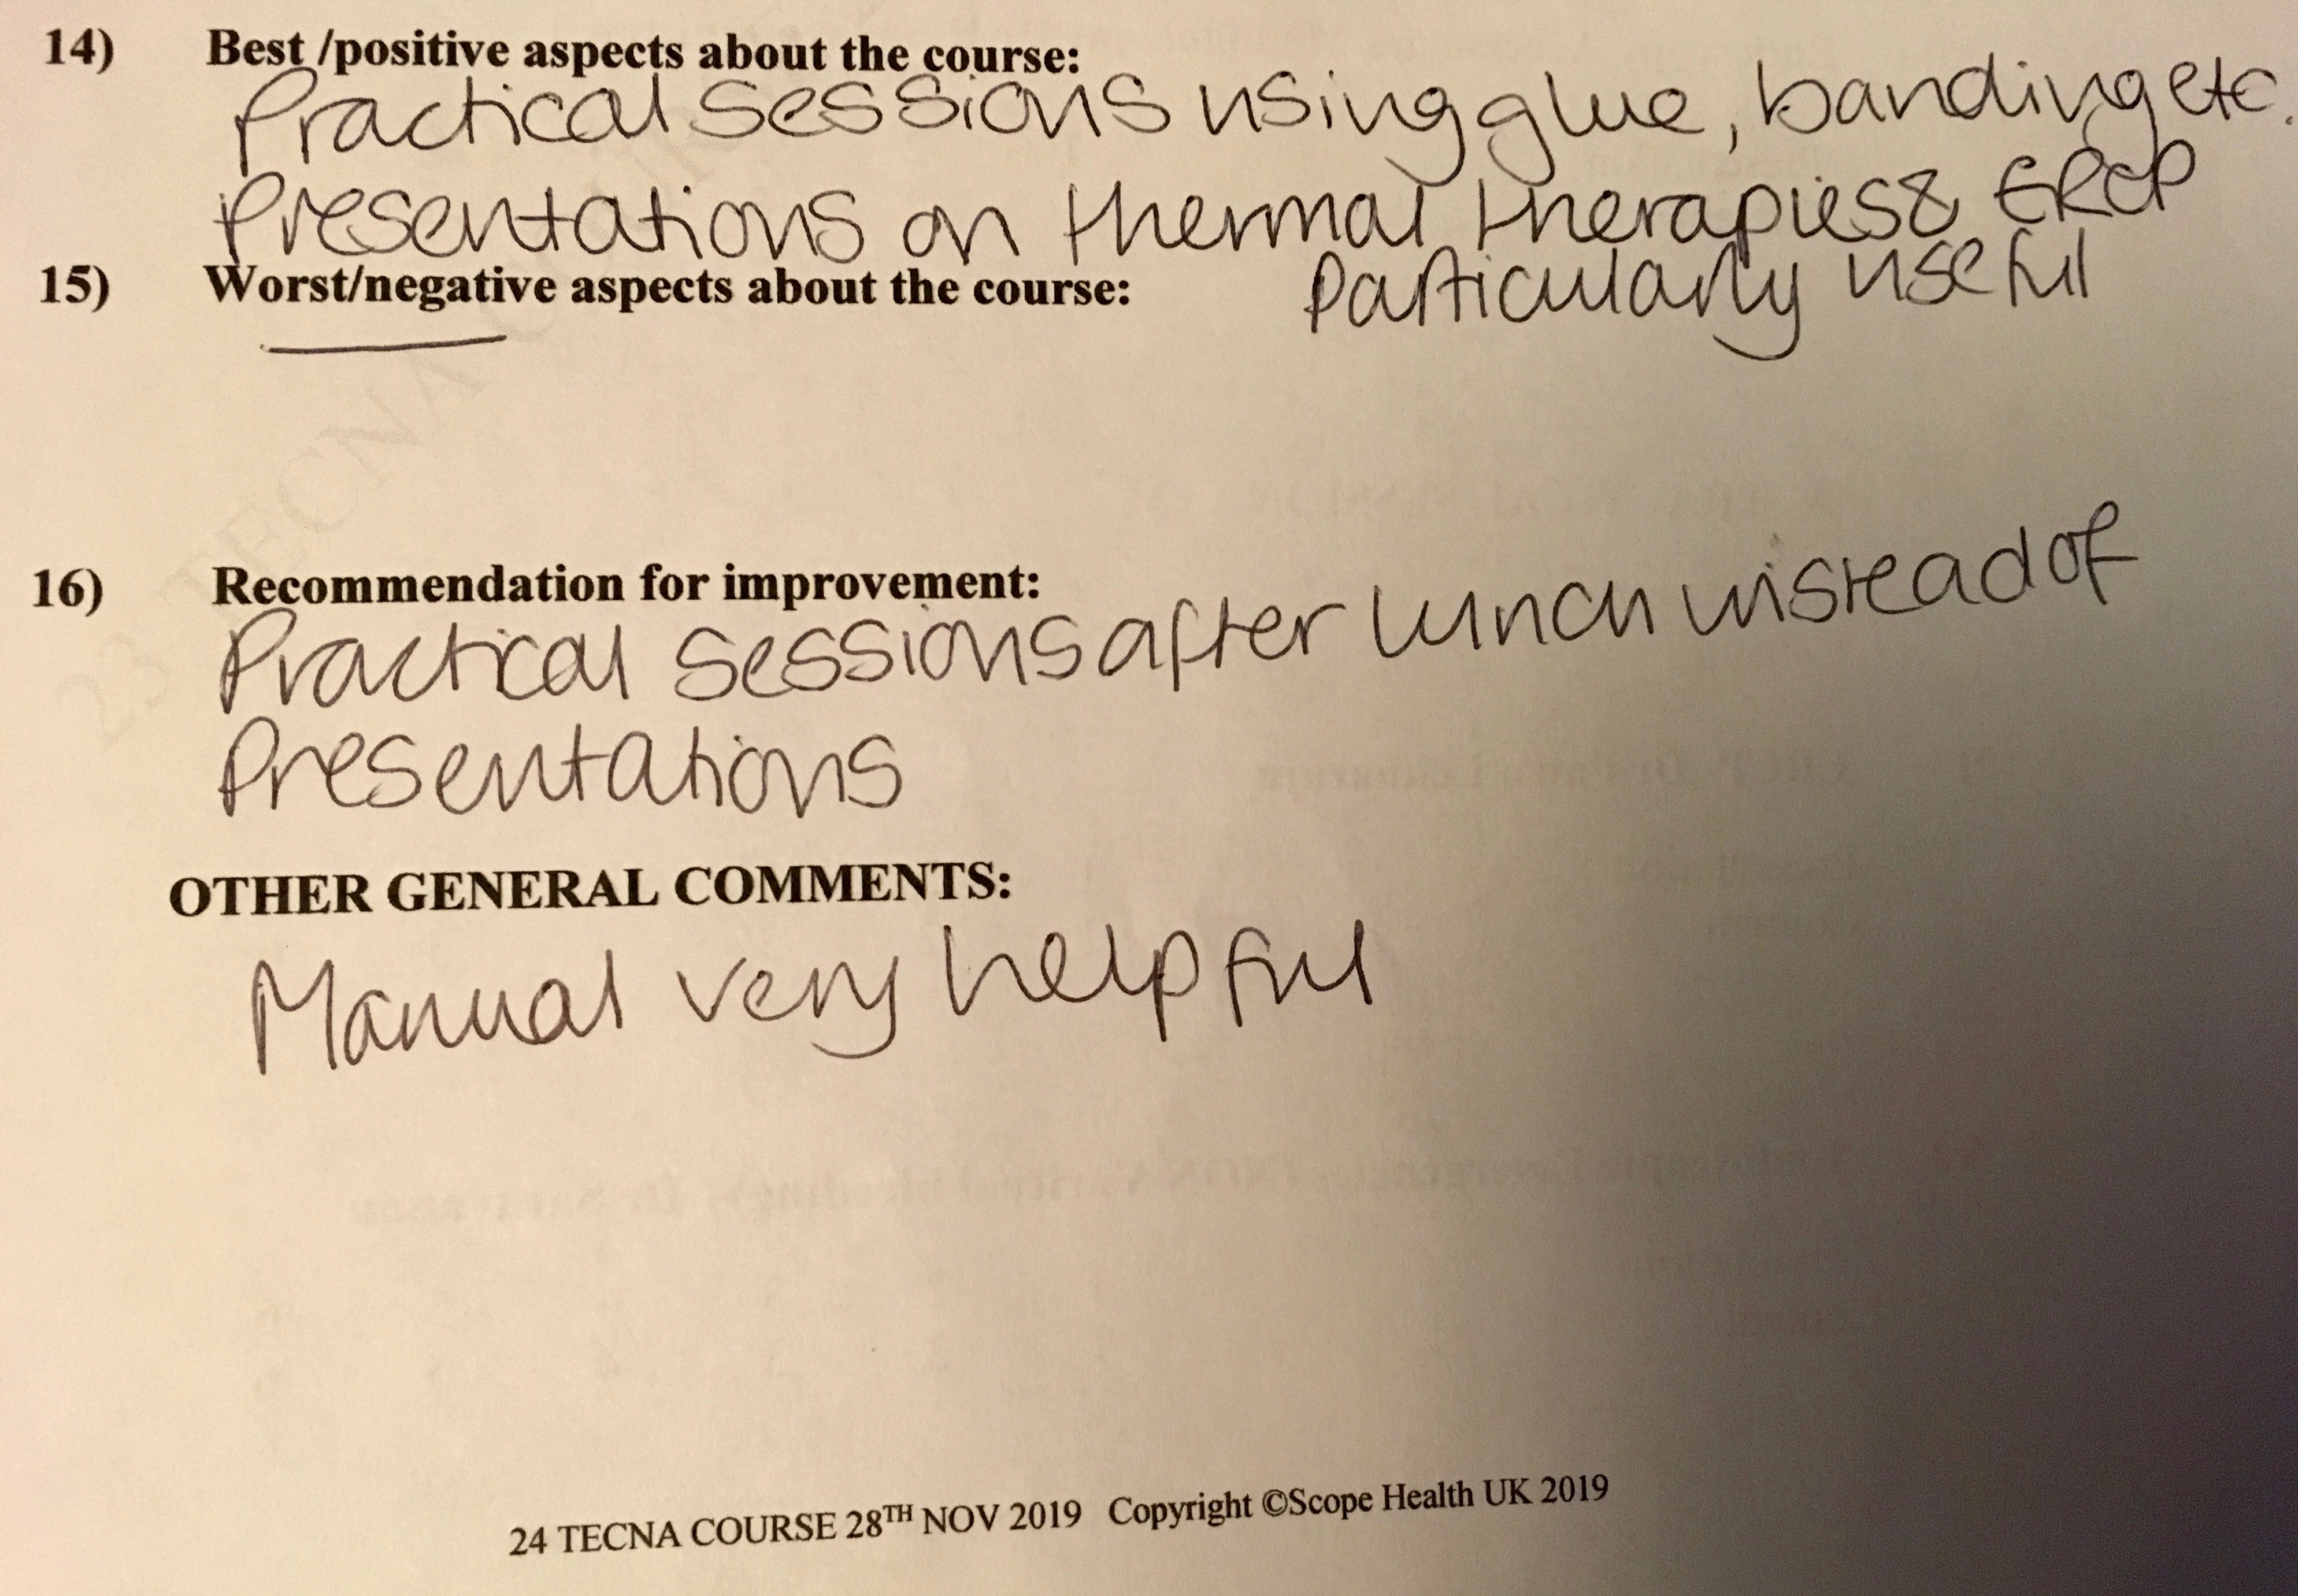 14) Best /positive aspects about the course:
Practical sessions using glue, banding etc.
Presentations on thermal therapies & ERCP
particularly useful
15) Worst/negative aspects about the course:
16) Recommendation for improvement:
Practical sessions after lunch instead of
Presentations
OTHER GENERAL COMMENTS:
Manual very helpful
24 TECNA COURSE 28TH NOV 2019 Copyright ©Scope Health UK 2019